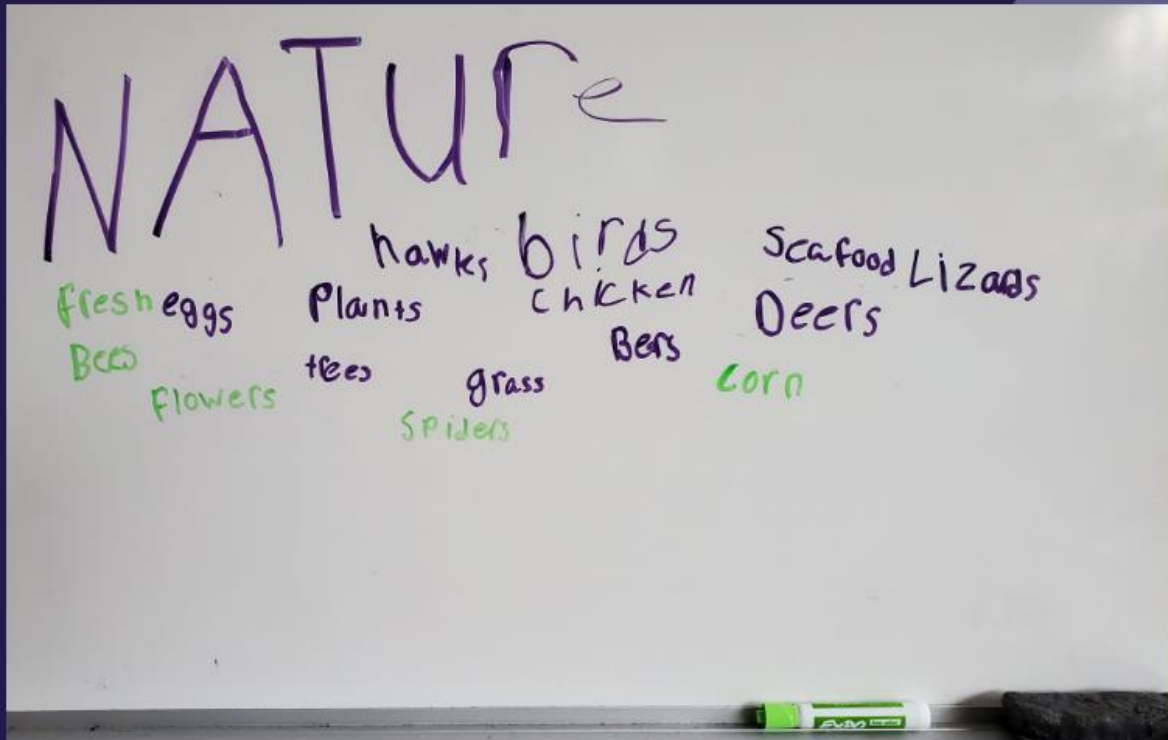 NATUre
hawks birds Seafood Lizads
fresh eggs Plants chicken Deers
Bees trees Bers
Flowers grass Corn
Spiders
EXPO